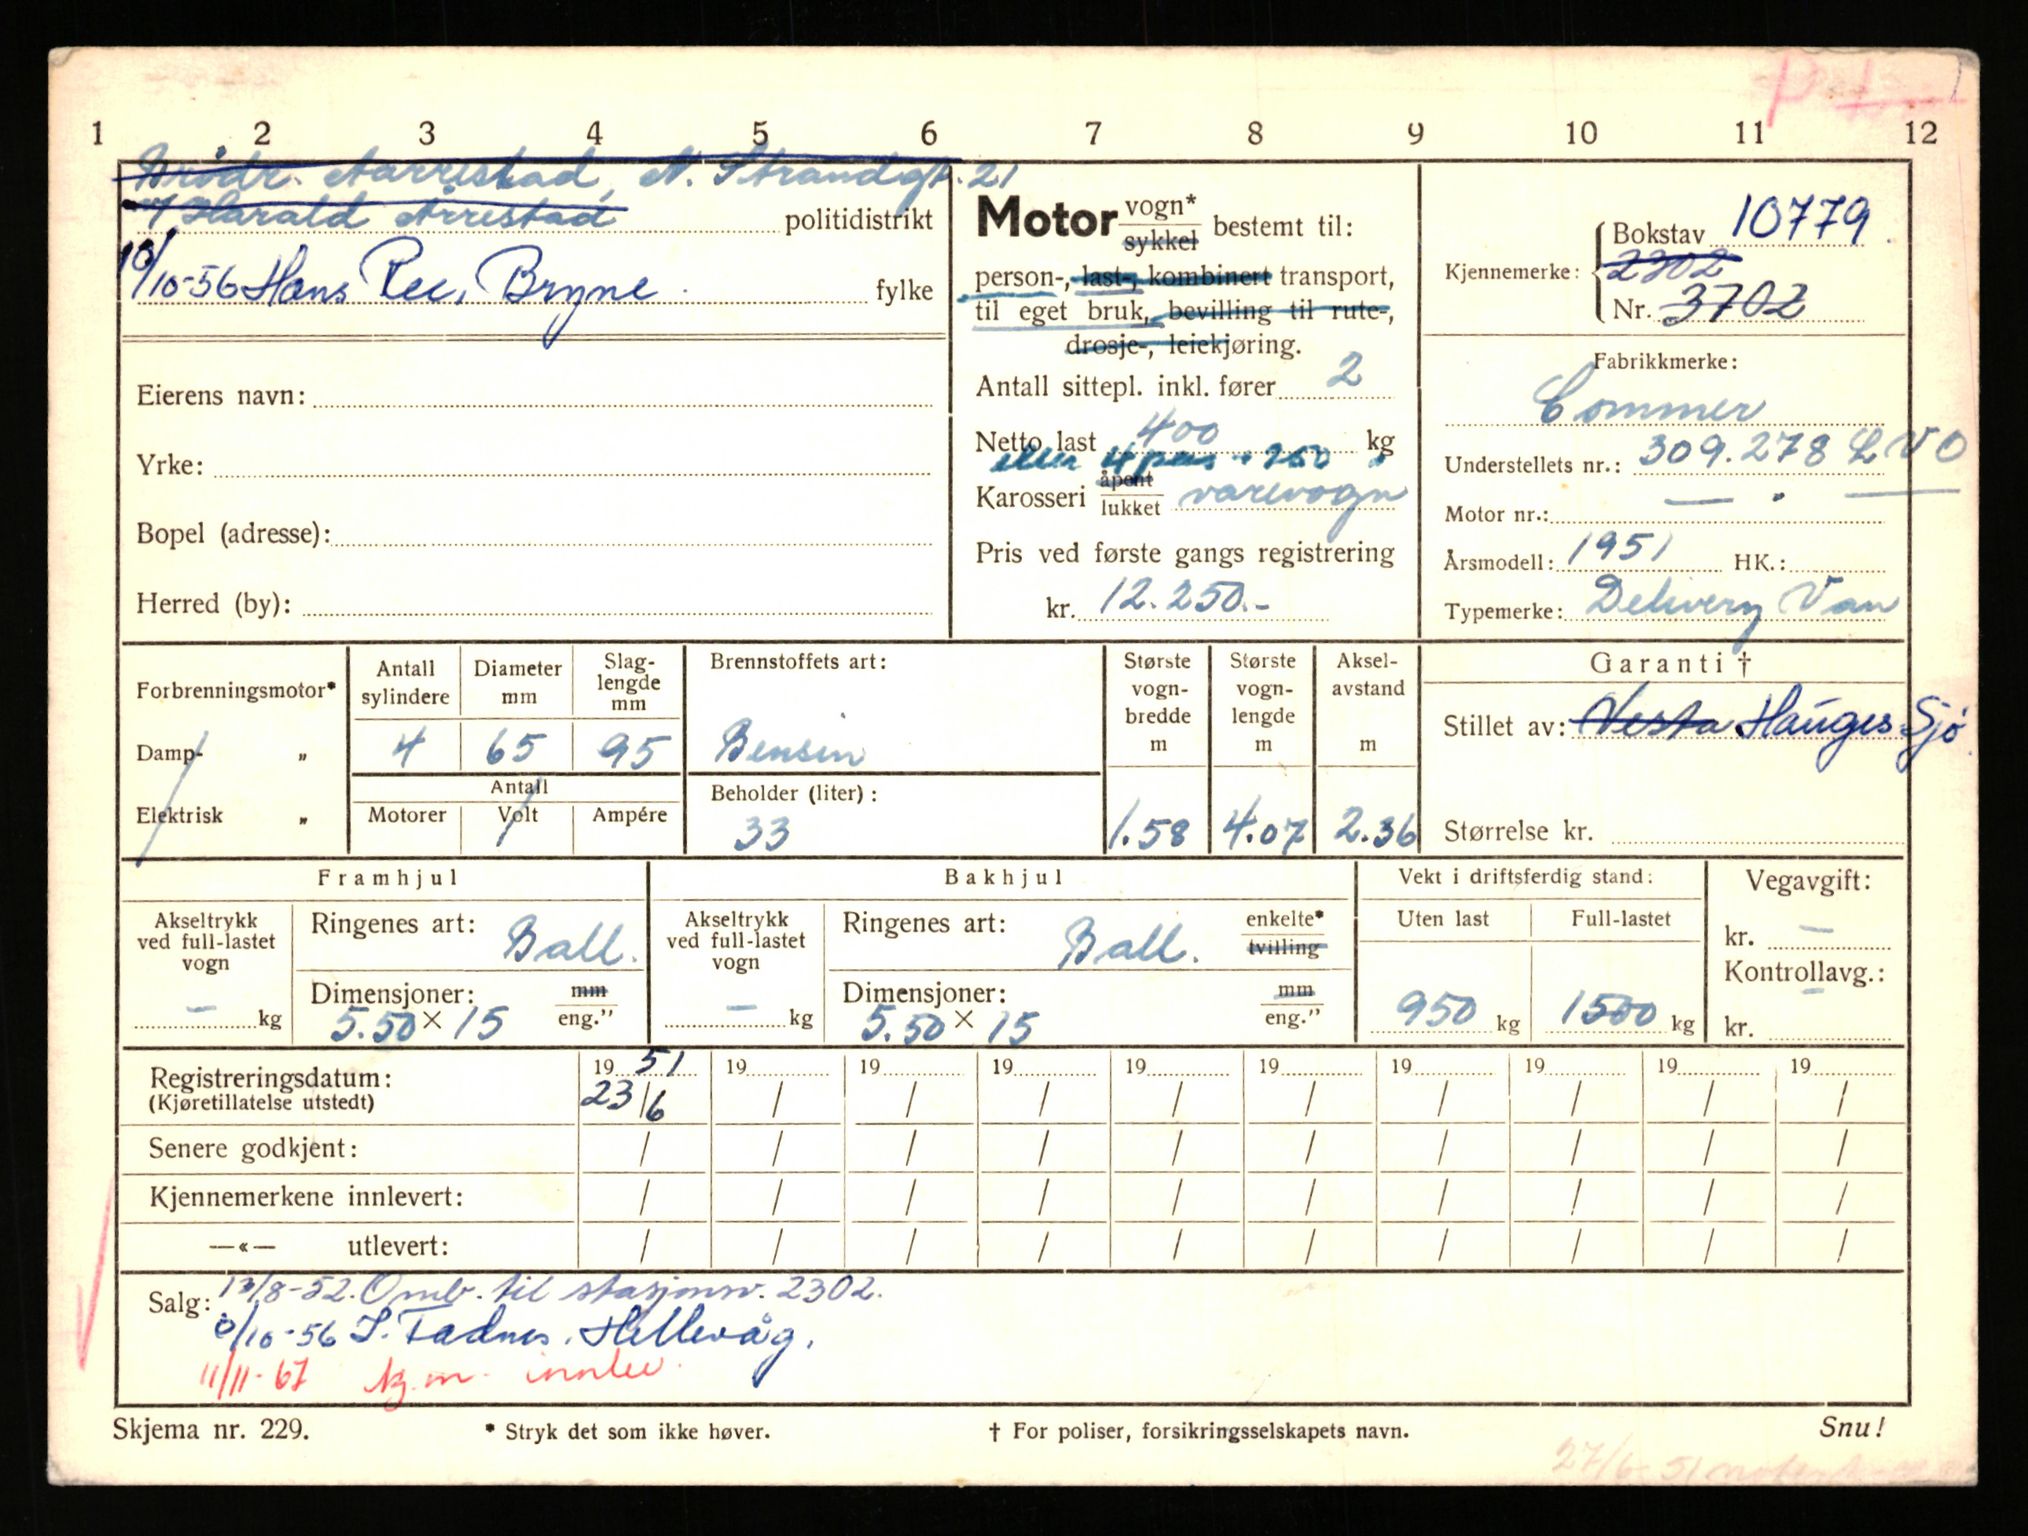 1 2 3 4 5 6 7 8 9 10 11 12
Brödr. Aarrestad, N. Strandgt. 21
v/ Harald Årrestad politidistrikt
10/10-56 Hans Ree, Bryne. fylke
Eierens navn:
Yrke:
Bopel (adresse):
Herred (by):
Motor vogn* sykkel bestemt til:
person-, last-, kombinert transport,
til eget bruk, bevilling til rute-,
drosje-, leiekjøring.
Antall sittepl. inkl. fører 2
Netto last 400 kg
eller 4 pers + 250
Karosseri åpent lukket varevogn
Pris ved første gangs registrering
kr. 12.250.-
Kjennemerke: Bokstav 10779
2302
Nr. 3702
Fabrikkmerke:
Commer
Understellets nr.: 309.278 LVO
Motor nr.: — " —
Årsmodell: 1951 HK.:
Typemerke: Delivery Van
Forbrenningsmotor*
Damp- „
Elektrisk „
Antall sylindere
Diameter mm
Slag-lengde mm
4 65 95
Antall
Motorer Volt Ampére
Brennstoffets art:
Bensin
Beholder (liter):
33
Største vogn-bredde m
1.58
Største vogn-lengde m
4.07
Aksel-avstand m
2.36
Garanti †
Stillet av: Vesta Hauges. Sjø
Størrelse kr.
Framhjul
Akseltrykk ved full-lastet vogn
— kg
Ringenes art: Ball.
Dimensjoner: mm
5.50 × 15 eng.”
Bakhjul
Akseltrykk ved full-lastet vogn
— kg
Ringenes art: Ball. enkelte* tvilling
Dimensjoner: mm
5.50 × 15 eng.”
Vekt i driftsferdig stand:
Uten last Full-lastet
950 kg 1500 kg
Vegavgift:
kr. —
Kontrollavg.:
kr. —
Registreringsdatum: 19 51 19 19 19 19 19 19 19 19 19
(Kjøretillatelse utstedt) 23/6 / / / / / / / / /
Senere godkjent: / / / / / / / / / /
Kjennemerkene innlevert: / / / / / / / / / /
—«— utlevert: / / / / / / / / / /
Salg: 13/8-52. Omb. til stasjonsv. 2302.
/10-56 S. Tadnes. Hellevåg.
11/11-67 kj.m. innlev.
Skjema nr. 229.
* Stryk det som ikke høver.
† For poliser, forsikringsselskapets navn.
Snu!
27/6-51